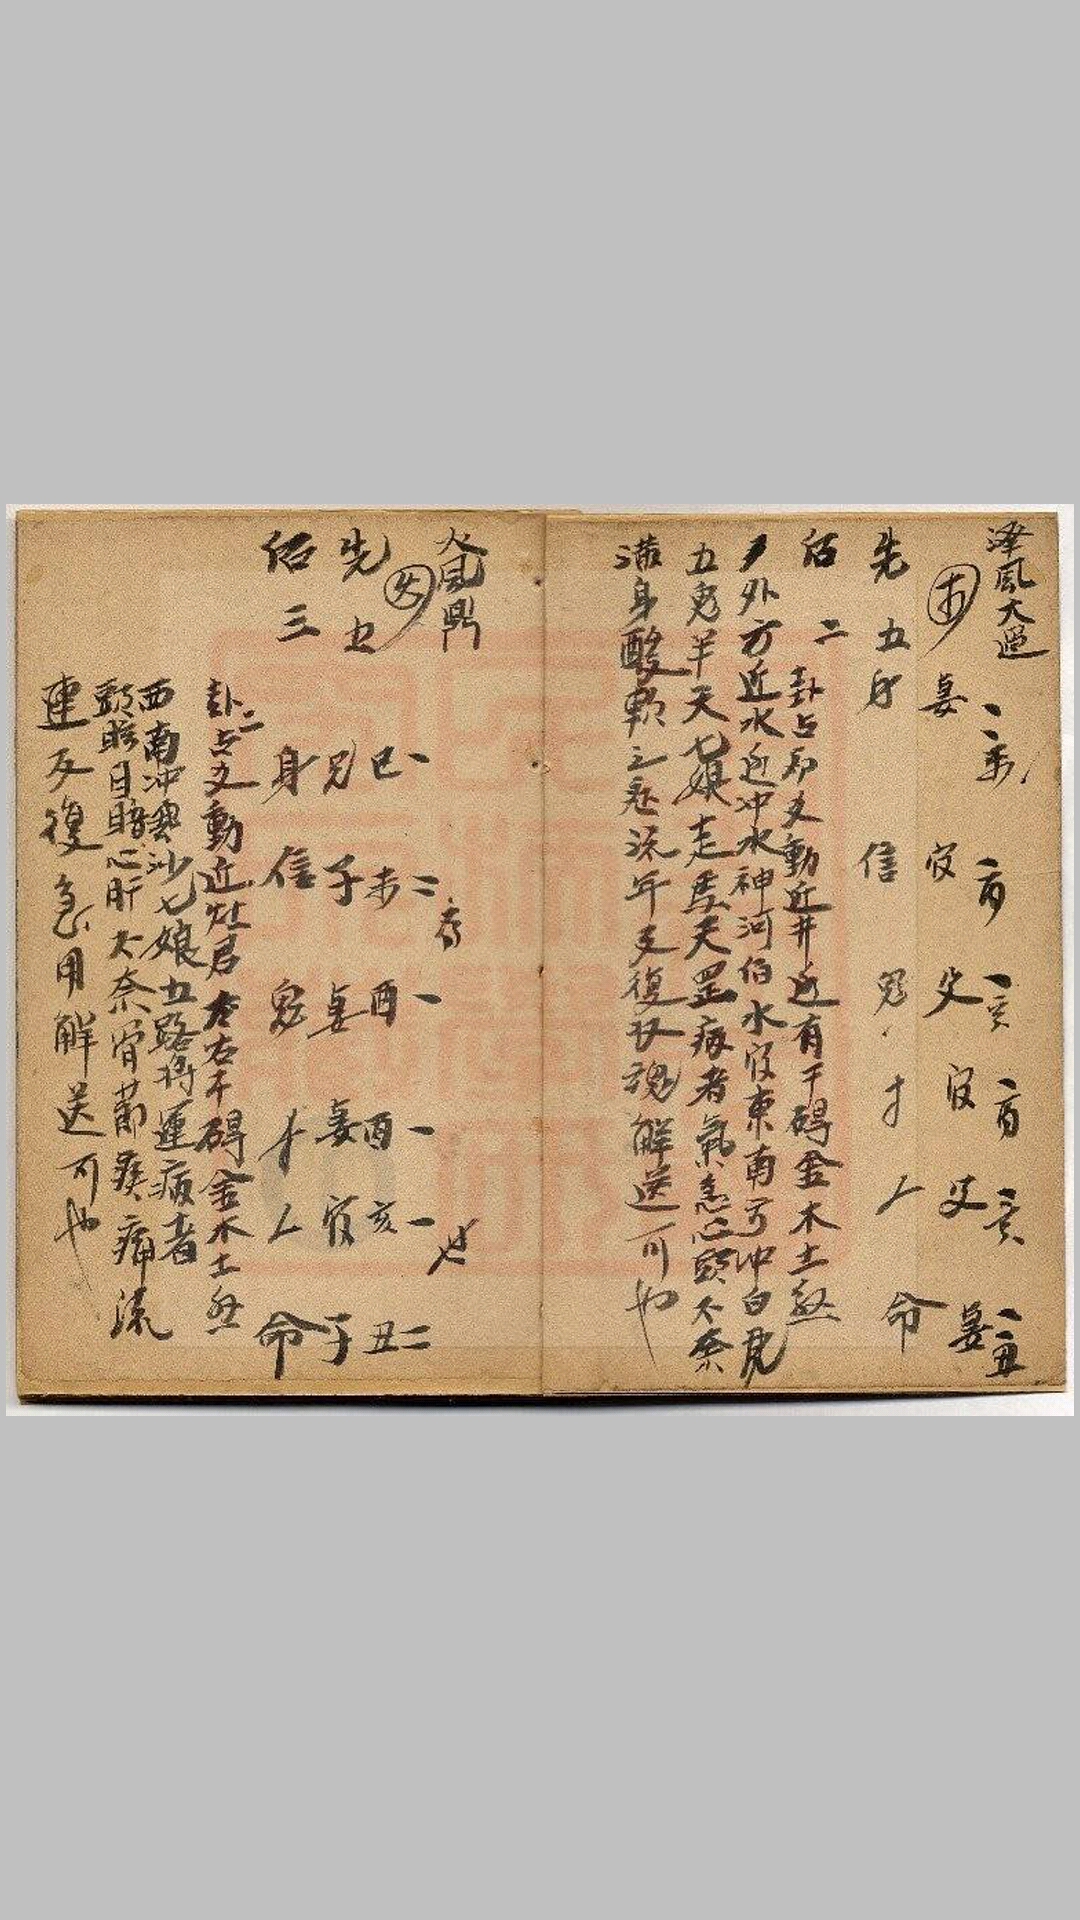 澤風大過
木
、未
酉
、亥
酉
、亥
、丑
妻 官 父 官 父 妻
先五 身 信 鬼 才 人 命
后二
卦占 爻動近井近有干碍金木土煞
外方近水近冲水神河伯水官東南方冲白虎
五鬼羊天七娘走馬天罡病者氣急心頭不奈
滿身酸軟之 流年反復 魂解送可也
火風鼎
火
巳、 未二 酉、 酉、 亥、 丑二
世
先五 兄 子 妻 妻 官 子
后三 身 信 鬼 才 人 命
卦二占 動近灶君左右干碍金木土煞
西南冲 沙七娘五路將運病者
頭眩目暗心肝不奈骨節疼痛
連反復急用解送可也